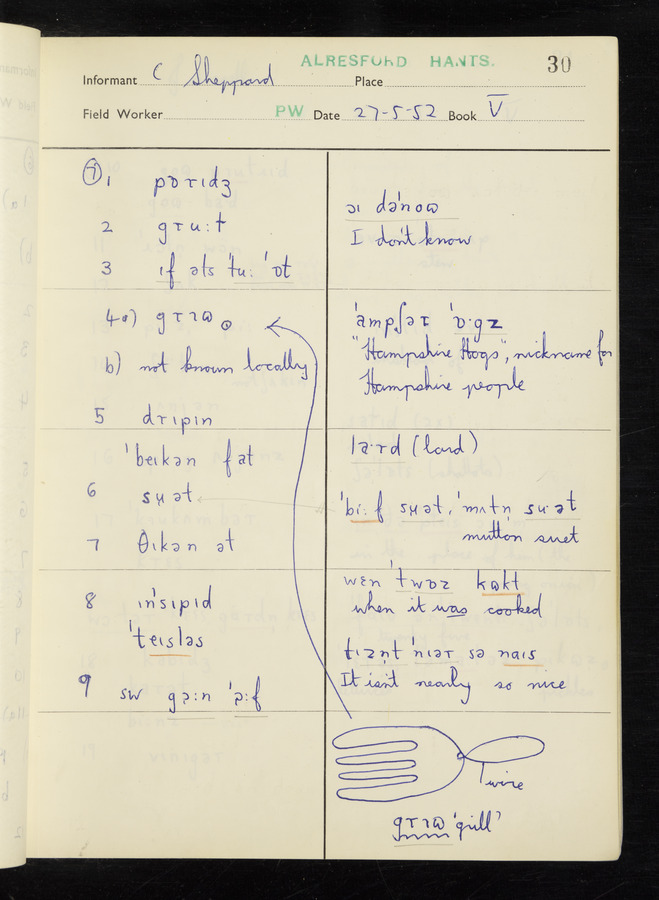 ALRESFORD HANTS. 30
Informant C Sheppard Place
Field Worker PW Date 27-5-52 Book V
⑦ 1 pɒɹɪdʒ
2 gɹuːt
3 ɪf əts ˈtuː ˈɒt
4a) gɹɪɷ
b) not known locally
5 dɹɪpɪn
ˈbeɪkən fat
6 sʉət
7 θɪkən ət
8 ɪnˈsɪpɪd
ˈteɪsləs
9 sw gɔːn ˈɔːf
əɪ dəˈnoɷ
I don't know
ˈampʃəɹ ˈɒ·gz
"Hampshire Hogs", nickname for
Hampshire people
laːɹd (lard)
ˈbiːf sʉət, ˈmʌtn suːət
mutton suet
wɛn ˈtwɒz kɷkt
when it was cooked
tɪznt ˈnɪəɹ sə naɪs
It isn't nearly so nice
wire
gɹɪɷ 'grill'